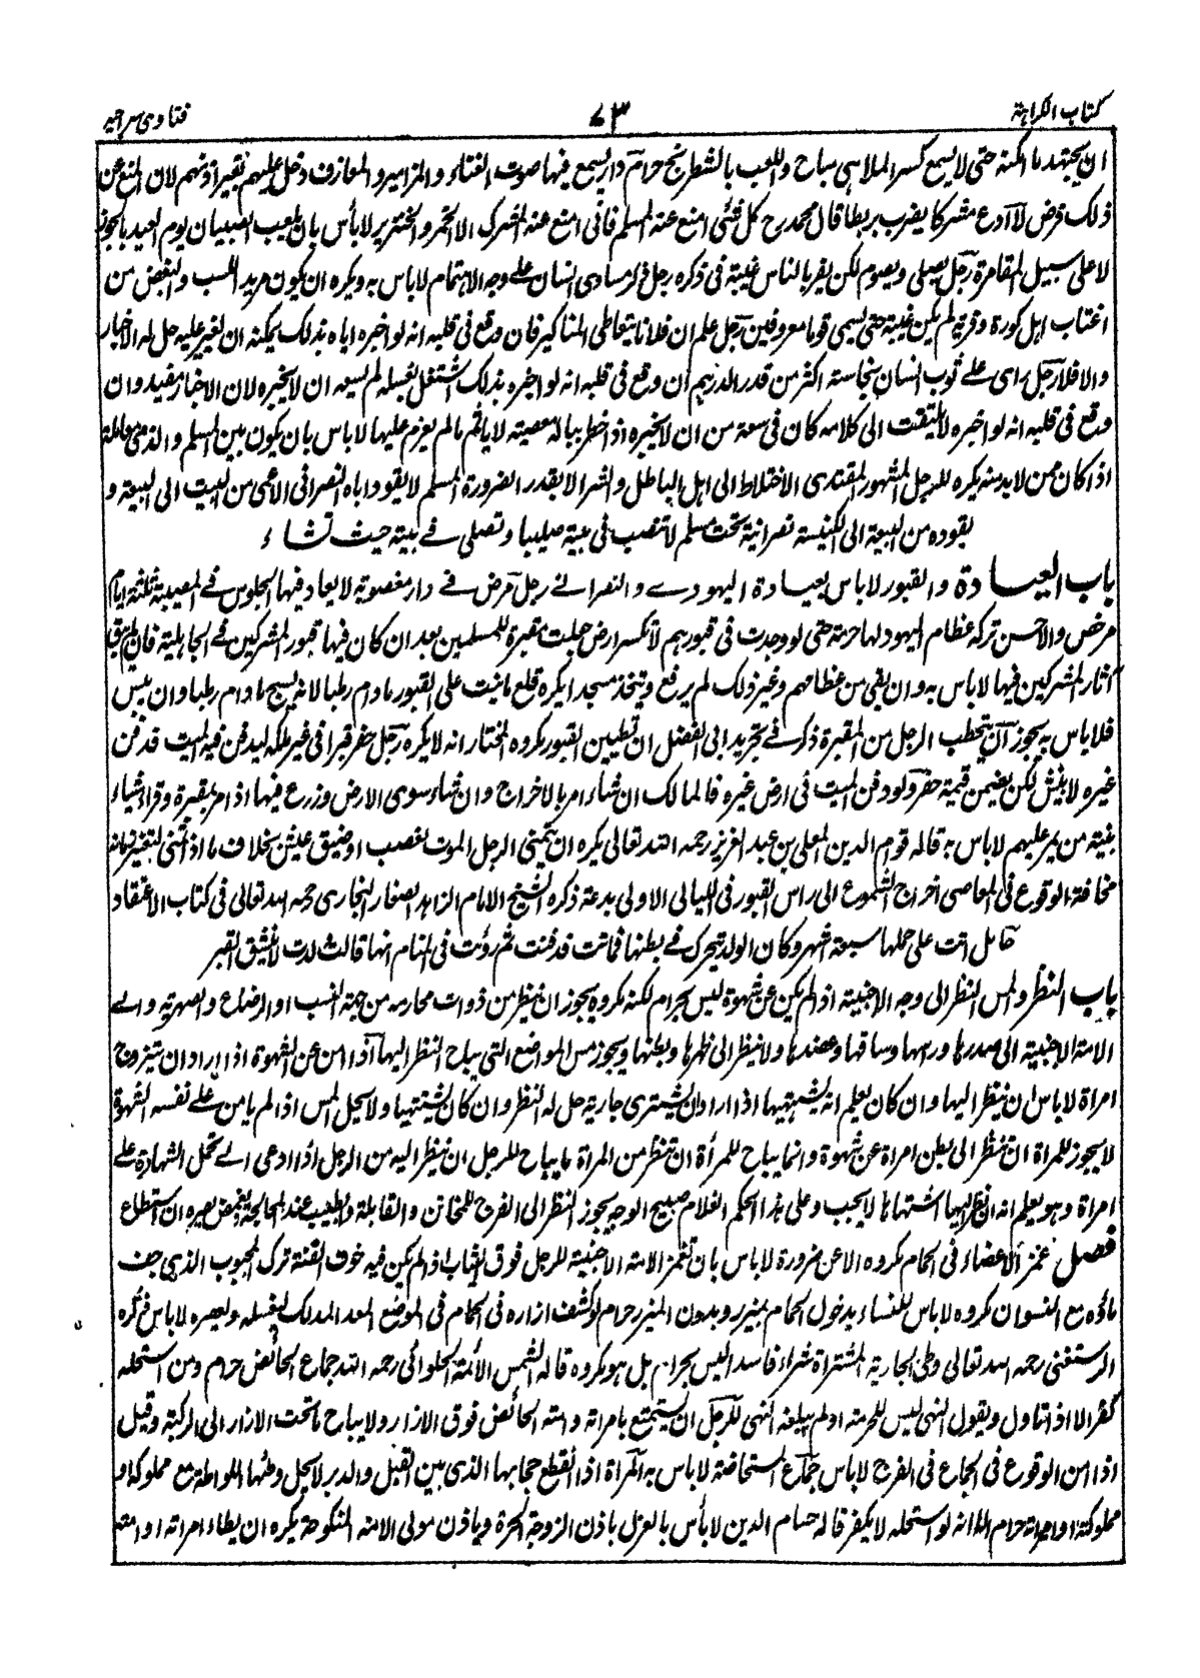 كتاب الكراهة ٧٣ فتاوى سراجيه
ان يجتهد ما امكنه حتى لا يسمع كسر الملاهي مباح واللعب بالشطرنج حرام دار يسمع فيها صوت الغناء والمزامير والمعازف دخل عليهم بغير اذنهم لان المنع عن
ذلك فرض لا آدع مشركا يضرب بربطا قال محمد رح كل شئ امنع عنه المسلم فاني امنع عنه المشرك الا الخمر والخنزير لا بأس بان يلعب الصبيان يوم العيد بالجوز
لا على سبيل المقامرة رجل يصلى ويصوم لكن يضر بالناس غيبة في ذكره رجل ذكر مساوى انسان على وجه الاهتمام لا باس به ويكره ان يكون مريد السب والبغض من
اغتاب اهل كورة وقرية لم يكن غيبة حتى يسمى قوما معروفين رجل علم ان فلانا يتعاطى المناكير فان وقع في قلبه انه لو اخبره اباه بذلك يمكنه ان يغير عليه حل له الاخبار
والا فلا رجل راى على ثوب انسان نجاسة اكثر من قدر الدرهم ان وقع في قلبه انه لو اخبره بذلك اشتغل بغسله لم يسعه ان لا يخبره لان الاخبار مفيد وان
وقع في قلبه انه لو اخبره لا يلتفت الى كلامه كان في سعة من ان لا يخبره اذا خطر بباله معصية لا ياثم ما لم يعزم عليها لا باس بان يكون بين المسلم والذمى معاملة
اذا كان ممن لا بد منه يكره للرجل المشهور المقتدى الاختلاط الى اهل الباطل والشر الا بقدر الضرورة المسلم لا يقود اباه النصرانى الاعمى من البيت الى البيعة و
يقوده من البيعة الى الكنيسة نصرانية تحت مسلم لا تنصب في بيته صليبا وتصلى في بيته حيث تشاء
باب العيادة والقبور لا باس بعيادة اليهودى والنصرانى رجل مرض في دار مغصوبة لا يعاد فيها الجلوس في المصيبة ثلثة ايام
مرخص والاحسن تركه عظام اليهود لها حرمة حتى لو وجدت في قبورهم لا تكسر ارض جعلت مقبرة للمسلمين بعد ان كان فيها قبور المشركين في الجاهلية فان لم يبق
آثار المشركين فيها لا باس به وان بقى من عظامهم وغير ذلك لم يرفع ويتخذ مسجدا يكره قلع ما نبت على القبور ما دام رطبا لانه يسبح ما دام رطبا وان يبس
فلا باس به يجوز ان يحتطب الرجل من المقبرة ذكر في تجريد ابى الفضل ان تطيين القبور مكروه المختار انه لا يكره رجل حفر قبرا في غير ملكه ليدفن فيه الميت قد فن
غيره لا ينبش لكن يضمن قيمة حفره لو دفن الميت في ارض غيره فالمالك ان شاء امر بالاخراج وان شاء سوى الارض وزرع فيها اذا مر بمقبرة وقرا شياء
بنية من يمر عليهم لا باس به قاله قوام الدين المعلى بن عبد العزيز رحمه الله تعالى يكره ان يتمنى الرجل الموت لغضب او ضيق عيش بخلاف ما اذا تمنى لتغير زمانه
مخافة الوقوع في المعاصى اخراج الشموع الى راس القبور في الليالى الاولى بدعة ذكره الشيخ الامام الزاهد الصفار البخارى رحمه الله تعالى في كتاب الاعتقاد
حامل اتت على حملها سبعة اشهر وكان الولد يتحرك في بطنها فماتت فدفنت ثم رؤيت في المنام انها قالت ولدت لا ينبش القبر
باب النظر والمس النظر الى وجه الاجنبية اذا لم يكن عن شهوة ليس بحرام لكنه مكروه يجوز ان ينظر من ذوات محارمه من جهة النسب او الرضاع والصهرية والى
الامة الاجنبية الى صدرها وراسها وساقها وعضدها ولا ينظر الى ظهرها وبطنها ويجوز مس المواضع التى يباح النظر اليها اذا امن عن الشهوة اذا اراد ان يتزوج
امراة لا باس ان ينظر اليها وان كان يعلم انه يشتهيها اذا اراد ان يشترى جارية حل له النظر وان كان يشتهيها ولا يحل المس اذا لم يامن على نفسه الشهوة
لا يجوز للمراة ان تنظر الى بطن امراة عن شهوة وانما يباح للمرأة ان تنظر من المراة ما يباح للرجل ان ينظر اليه من الرجل اذا ادعى الى تحمل الشهادة على
امراة وهو يعلم انه ان نظر اليها اشتهاها لا يجب وعلى هذا الحكم الغلام صبيح الوجه يجوز النظر الى الفرج للخاتن والقابلة والطبيب عند المعالجة ويغمض بصره ان استطاع
فصل غمز الاعضاء في الحمام مكروه الا عن ضرورة لا باس بان تغمز الامة الاجنبية للرجل فوق الثياب اذا لم يكن فيه خوف الفتنة ترك المجبوب الذى جف
ماؤه مع النسوان مكروه لا باس للنساء بدخول الحمام بميزر وبدون الميزر حرام لو كشف ازاره في الحمام في الموضع المعد لذلك ليغسله ويعصره لا باس ذكره
الرستغفنى رحمه الله تعالى وطئ الجارية المشتراة شراء فاسدا ليس بحرام بل هو مكروه قاله الشمس الأئمة الحلوائى رحمه الله جماع الحائض حرام ومن استحله
كفر الا اذا تاول ويقول النهى ليس للحرمة او لم يبلغه النهى للرجل ان يستمتع بامراته وامته الحائض فوق الازار ولا يباح ما تحت الازار الى الركبة وقيل
اذا امن الوقوع في الجماع في الفرج لا باس جماع المستحاضة لا باس به المرأة اذا انقطع حجابها الذى بين القبل والدبر لا يحل وطئها اللواطة مع مملوكه او
مملوكته او امراته حرام الا انه لو استحله لا يكفر قاله حسام الدين لا بأس بالعزل باذن الزوجة الحرة وباذن مولى الامة المنكوحة يكره ان يطاء امراته او امته